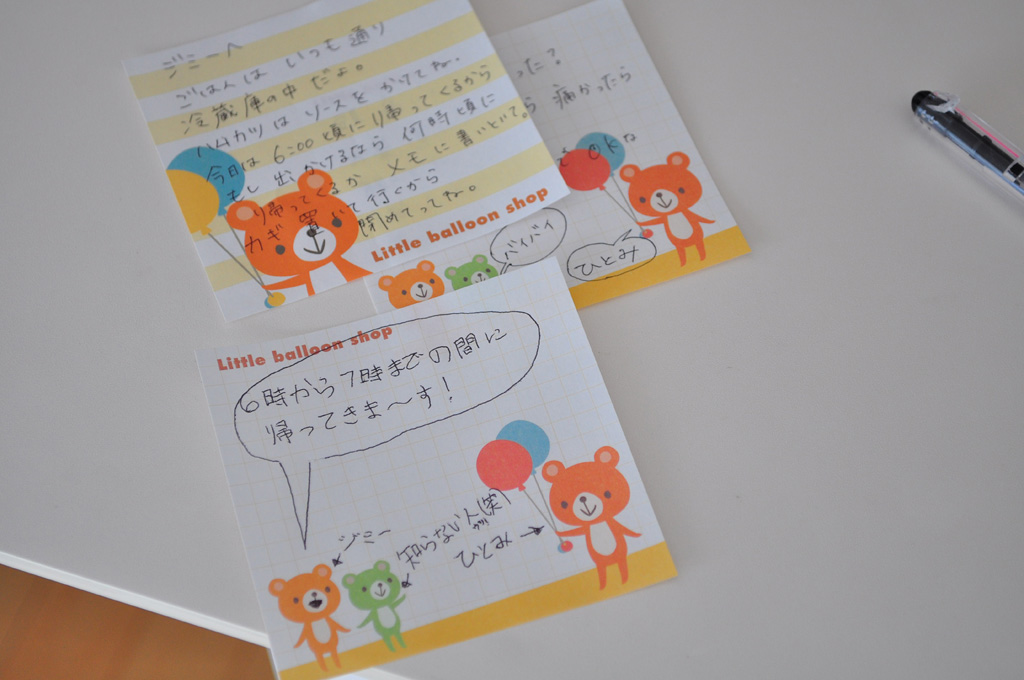 ジミーへ
ごはんは いつも通り
冷蔵庫の中だよ。
ハムカツは ソースをかけてね。
今日は 6:00頃に帰ってくるから
もし出かけるなら 何時頃に
帰ってくるか メモに書いといて。
カギ置いて行くから
閉めてってね。
Little balloon shop
った?
ら 痛かったら
OKね
バイバイ
ひとみ
Little balloon shop
6時から7時までの間に
帰ってきま〜す!
ジミー
知らない人(笑)
ひとみ→